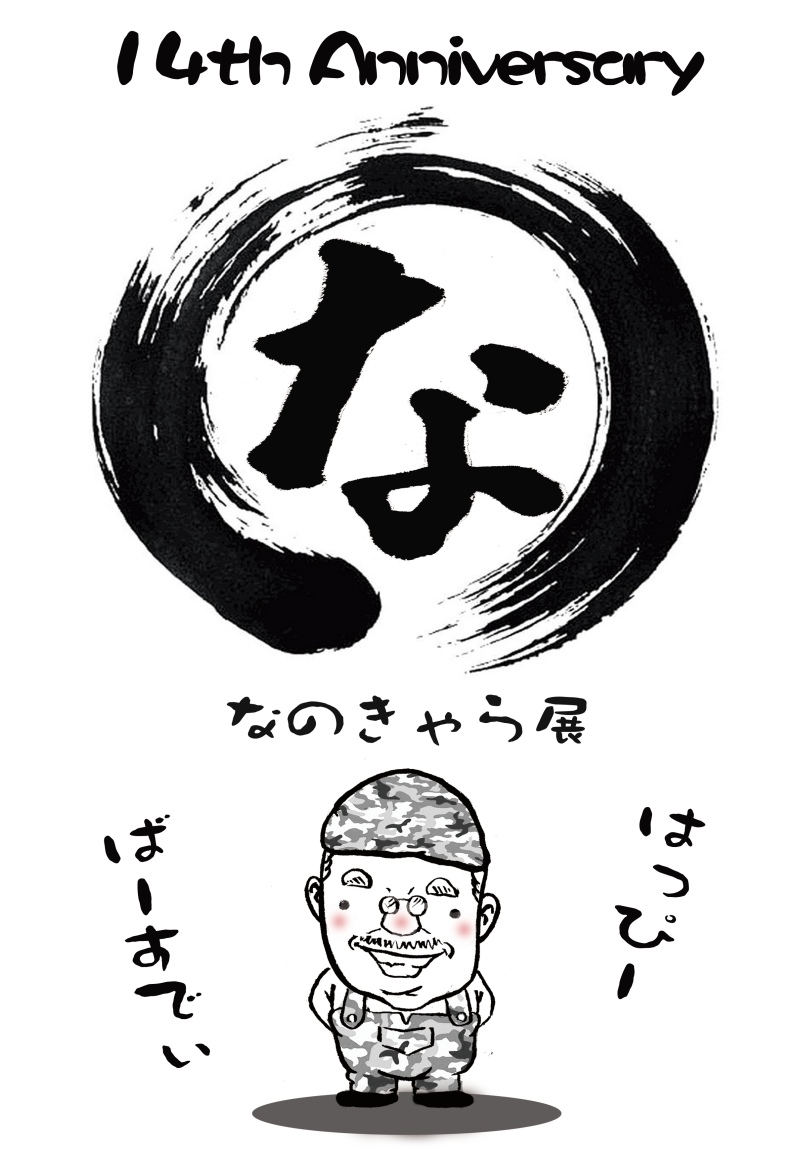 14th Anniversary
な
なのきゃら展
はっぴー
ばーすでい